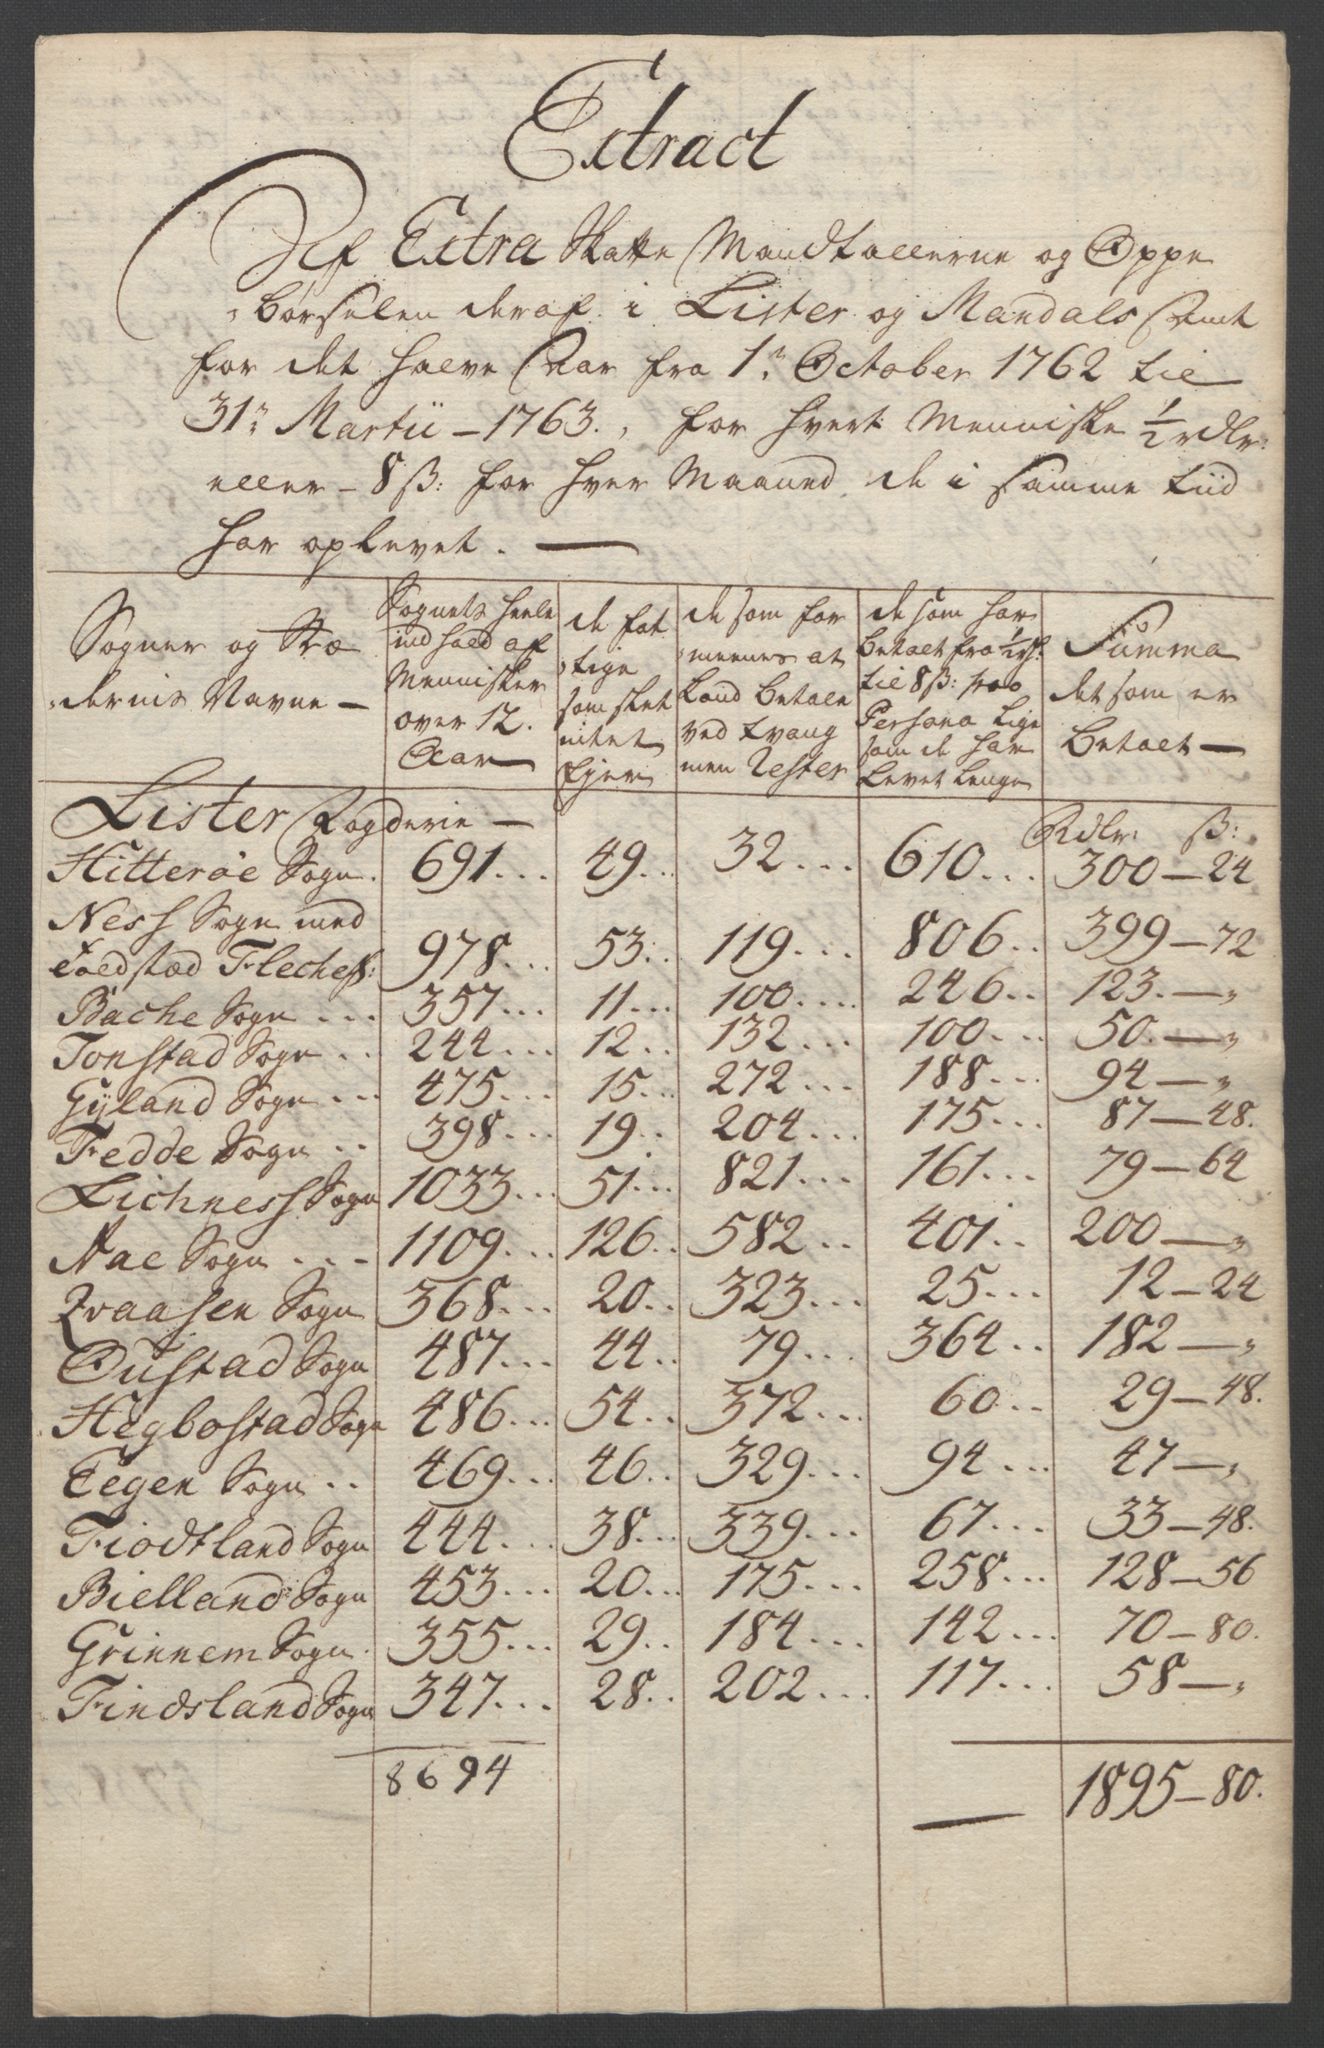 Extract
Af Extra Skatte Mandtallerne og Oppe
-börselen deraf i Lister og Mandals Amt
for det halve Aar fra 1.n October 1762 til
31.n Martii - 1763., for hvert Menniske 1/2 rdlr:
eller - 8 ß: for hver Maaned de i samme tiid
har oplevet. —
Sogner og Stæ
-dernis Navne —
Sognets heele
indhold af
Mennisker
over 12.
Aar
de fat
-tige
som slet
intet
Ejer
de som for
-meenes at
kand betale
ved tvang
men Rester
de som har
betalt fra 1/2 rd:
til 8 ß: pro
Persona lige
som de har
levet lenge
Summa
det som er
betalt —
Lister Fogderie — Rdlr: ß:
Hitteröe Sogn. 691... 49... 32... 610... 300 — 24
Ness Sogn med
Ladstæd Flechef: 978... 53.. 119... 806.. 399 — 72
Bache Sogn ... 357... 11... 100.... 246.. 123. — „
Tonstad Sogn .. 244... 12.. 132... 100... 50. — „
Gÿland Sogn ... 475... 15... 272... 188... 94 — „
Fedde Sogn .. 398... 19.. 204... 175... 87 — 48.
Lichness Sogn 1033... 51... 821... 161... 79 — 64
Nae Sogn ... 1109... 126.. 582.. 401.. 200 — „
Qvaasen Sogn 368... 20.. 323... 25... 12 — 24
Oustad Sogn 487... 44.. 79... 364.. 182 — „
Hegbostad Sogn 486... 54.. 372... 60.. 29 — 48.
Eegen Sogn .. 469... 46.. 329... 94... 47 — „
Fiodtland Sogn 444... 38... 339... 67... 33 — 48.
Bielland Sogn 453... 20... 175... 258... 128 — 56
Grinnem Sogn. 355... 29.. 184... 142... 70 — 80.
Findsland Sogn 347... 28.. 202... 117... 58 — „
8694 — 1895 — 80.